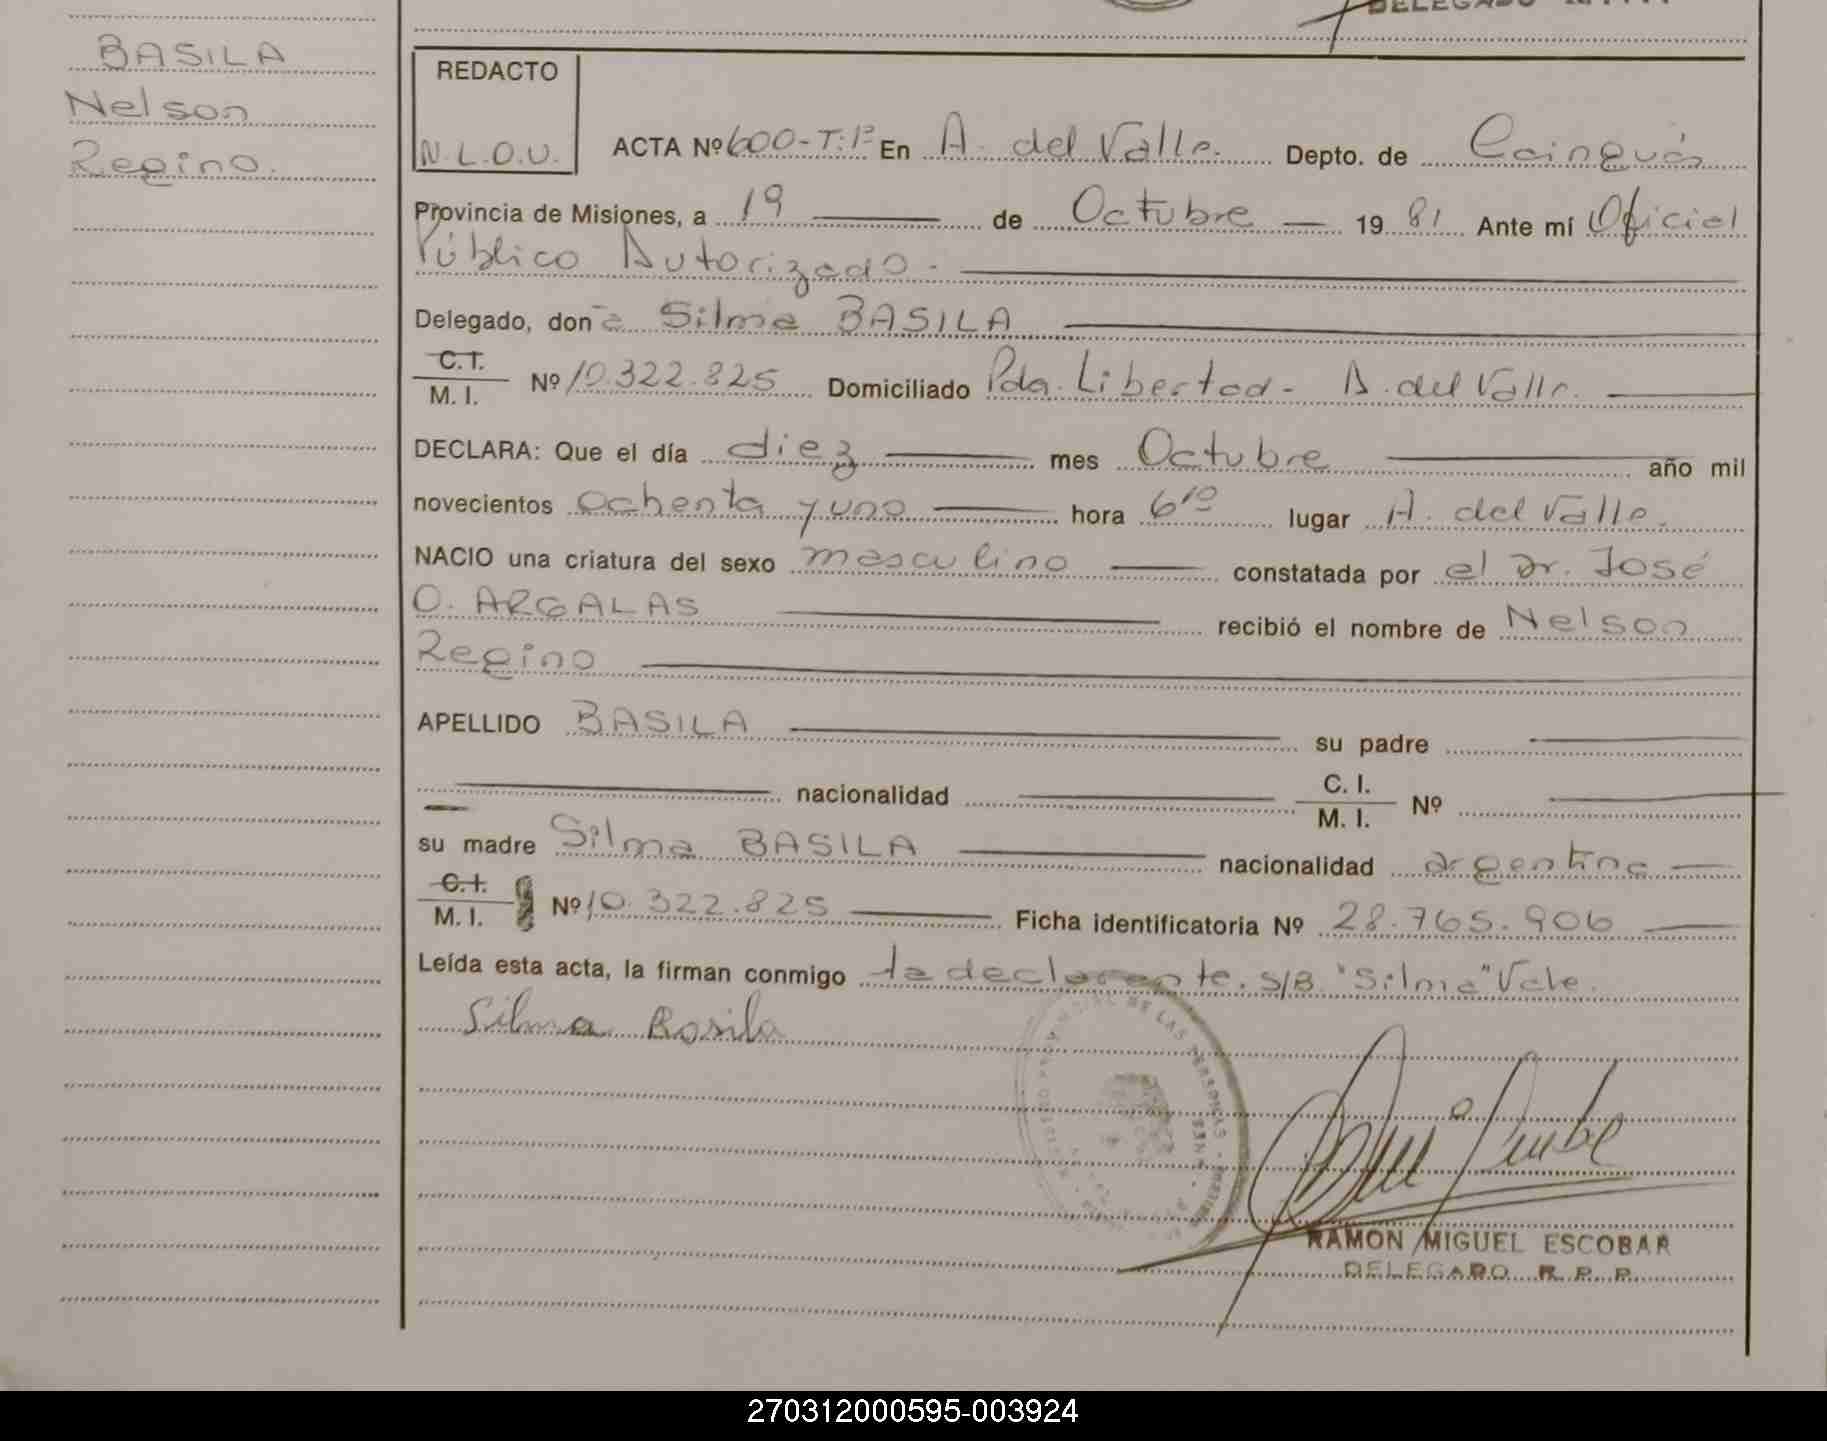 DELEGADO R.P.P.
BASILA
Nelson
Regino.
REDACTO
N.L.O.U.
ACTA Nº 600-T:1º En A. del Valle. Depto. de Cainguás
Provincia de Misiones, a 19 de Octubre 1981 Ante mí Oficial
Público Autorizado.-
Delegado, doña Silma BASILA
C.I.
M. I. Nº 10.322.825 Domiciliado Pda. Libertad - A. del Valle.
DECLARA: Que el día diez mes Octubre año mil
novecientos ochenta y uno hora 6¹⁰ lugar A. del Valle.
NACIO una criatura del sexo masculino constatada por el Dr. José
O. ARGALAS recibió el nombre de Nelson
Regino
APELLIDO BASILA su padre
nacionalidad C. I.
M. I. Nº
su madre Silma BASILA nacionalidad argentina
C.I.
M. I. Nº 10.322.825 Ficha identificatoria Nº 28.765.906
Leída esta acta, la firman conmigo la declarante. S/B. "Silma" Vale.
Silma Basila
DE LAS PERSONAS
RAMON MIGUEL ESCOBAR
DELEGADO R. P. P.
270312000595-003924